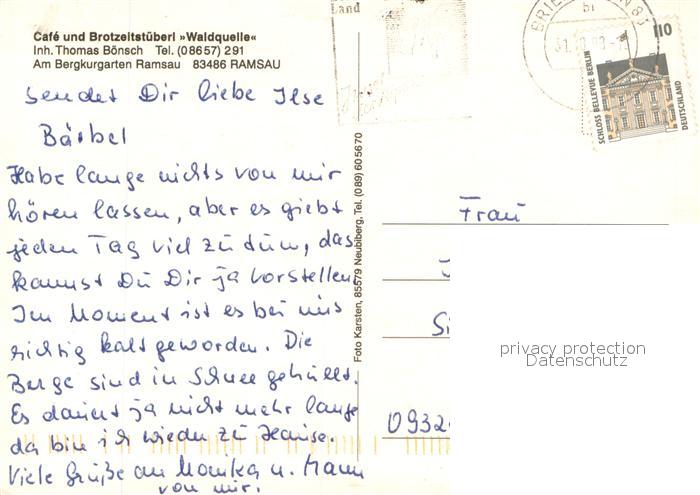 Café und Brotzeitstüberl »Waldquelle«
Inh. Thomas Bönsch Tel. (08657) 291
Am Bergkurgarten Ramsau 83486 RAMSAU
sendet Dir liebe Ilse
Bärbel
Habe lange nichts von mir
hören lassen, aber es giebt
jeden Tag viel zu tun, das
kannst Du Dir ja vorstellen
Im Moment ist es bei uns
richtig kalt geworden. Die
Berge sind in Schnee gehüllt.
Es dauert ja nicht mehr lange
da bin ich wieder zu Hause.
Viele Grüße an Monika u. Mann
von mir.
Foto Karsten, 85579 Neubiberg, Tel. (089) 605670
Land
BRIE
81
110
SCHLOSS BELLEVUE BERLIN
DEUTSCHLAND
Frau
Si
0932
privacy protection
Datenschutz